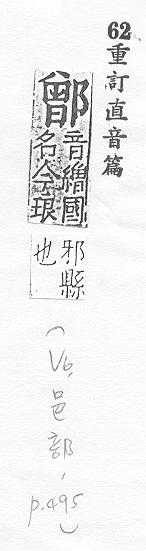 62重訂直音篇
鄫
音繒國
名今琅
邪縣
也
(V6,邑部,p.495)